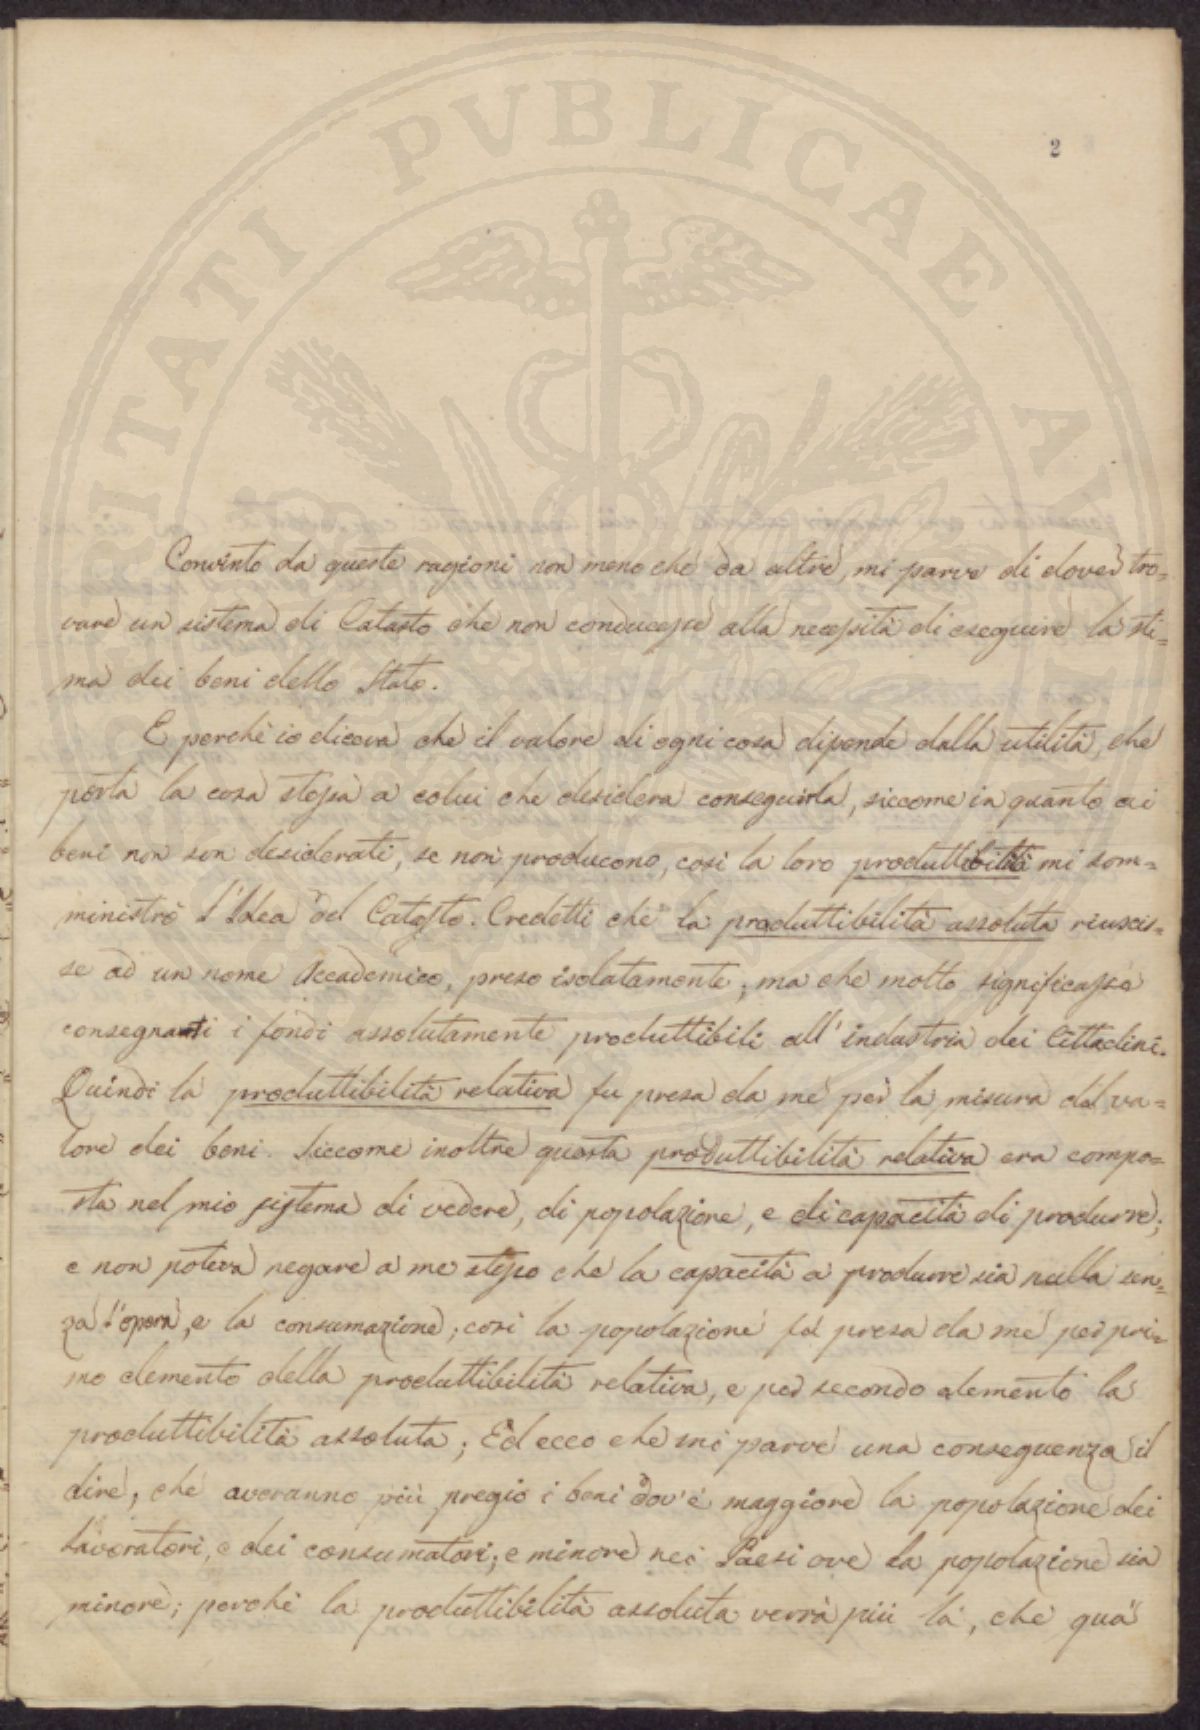 PVBLICAE
2
Convinto da queste ragioni non meno che da altre, mi parve di dover tro=
vare un sistema di Catasto che non conducesse alla necessità di eseguire la sti=
ma dei beni dello Stato.
E perchè io diceva che il valore di ogni cosa dipende dalla utilità, che
porta la cosa stessa a colui che desidera conseguirla, siccome in quanto ai
beni non son desiderati, se non producono, così la loro produttibilità mi som=
ministrò l'Idea del Catasto. Credetti che la produttibilità assoluta riuscis=
se ad un nome Accademico, preso isolatamente; ma che molto significasse
consegnati i fondi assolutamente produttibili all'industria dei Cittadini.
Quindi la produttibilità relativa fu presa da me per la misura del va=
lore dei beni. Siccome inoltre questa produttibilità relativa era compo=
sta nel mio sistema di vedere, di popolazione, e di capacità di produrre;
e non poteva negare a me stesso che la capacità a produrre sia nulla sen=
za l'opera, e la consumazione; così la popolazione fu presa da me per pri=
mo elemento della produttibilità relativa, e per secondo elemento la
produttibilità assoluta; Ed ecco che mi parve una conseguenza il
dire, che averanno più pregio i beni dov'è maggiore la popolazione dei
Lavoratori, e dei consumatori; e minore nei Paesi ove la popolazione sia
minore; perchè la produttibilità assoluta verrà più là, che quà